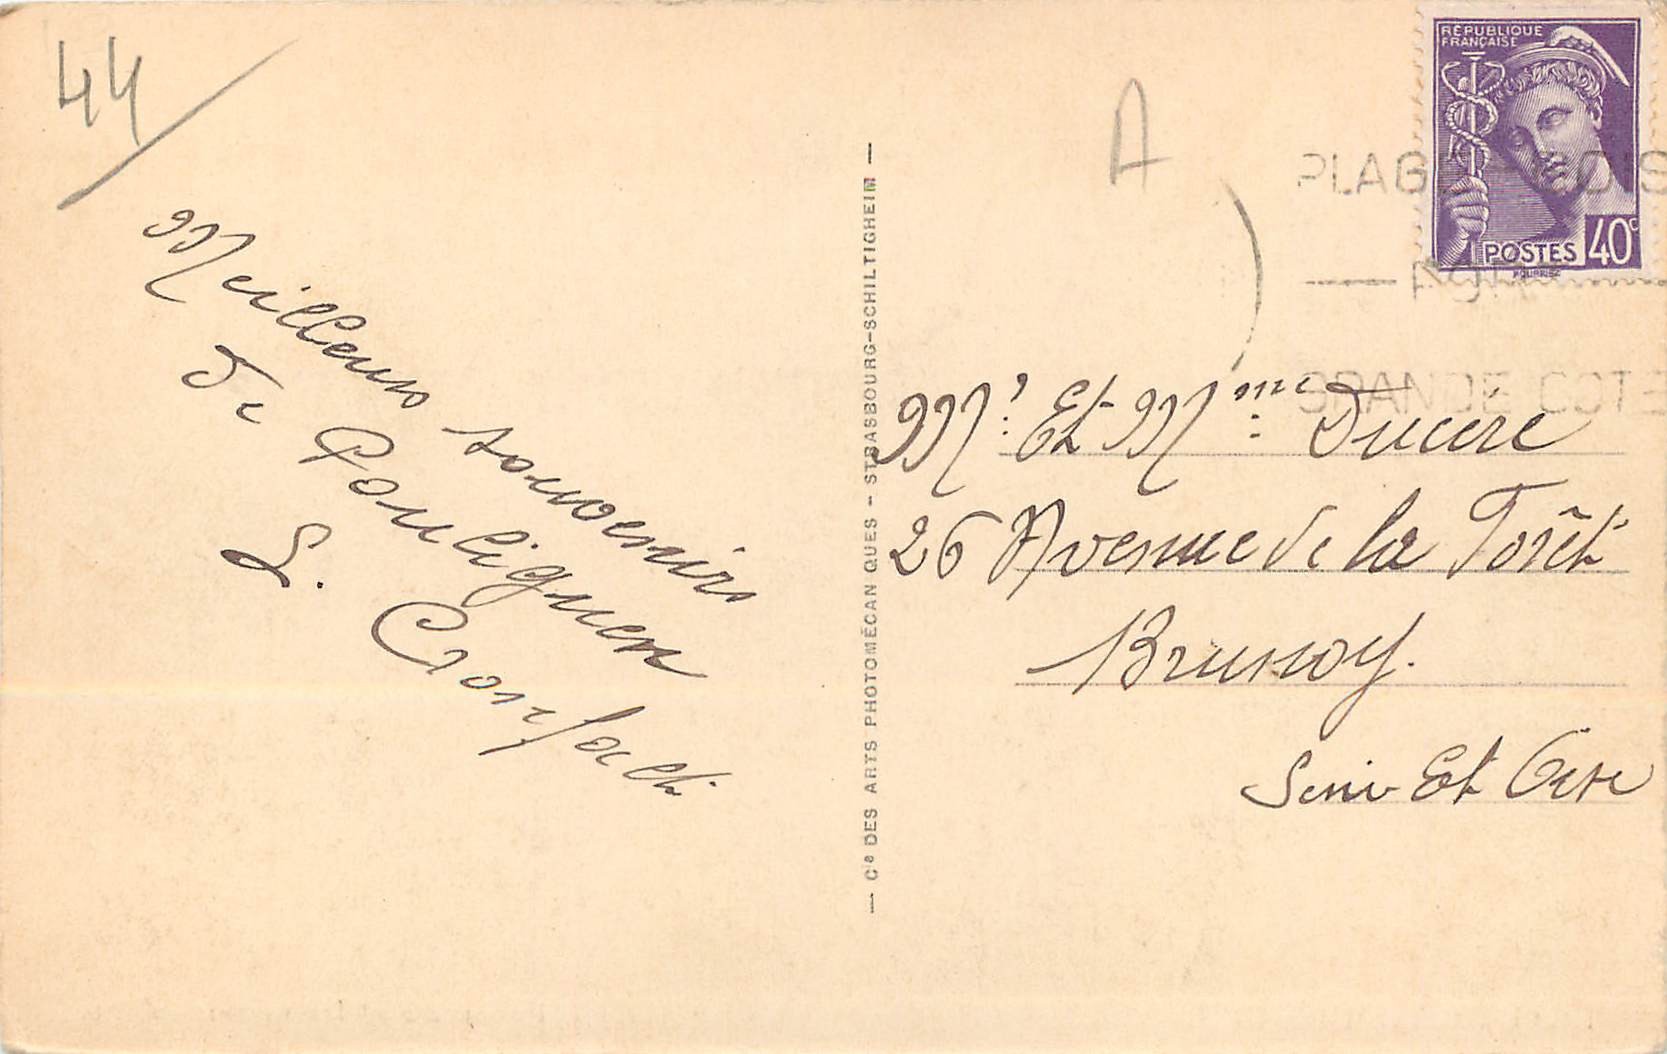 44
Meilleurs souvenirs
de Pouliguen
L.
A
RÉPUBLIQUE
FRANÇAISE
POSTES 40c
PLAGE
PORT
GRANDE COTE
— Cie DES ARTS PHOTOMÉCANIQUES - STRASBOURG-SCHILTIGHEIM —
Mr Et Mme Ducère
26 Avenue de la Forêt
Brunoy.
Seine Et Oise